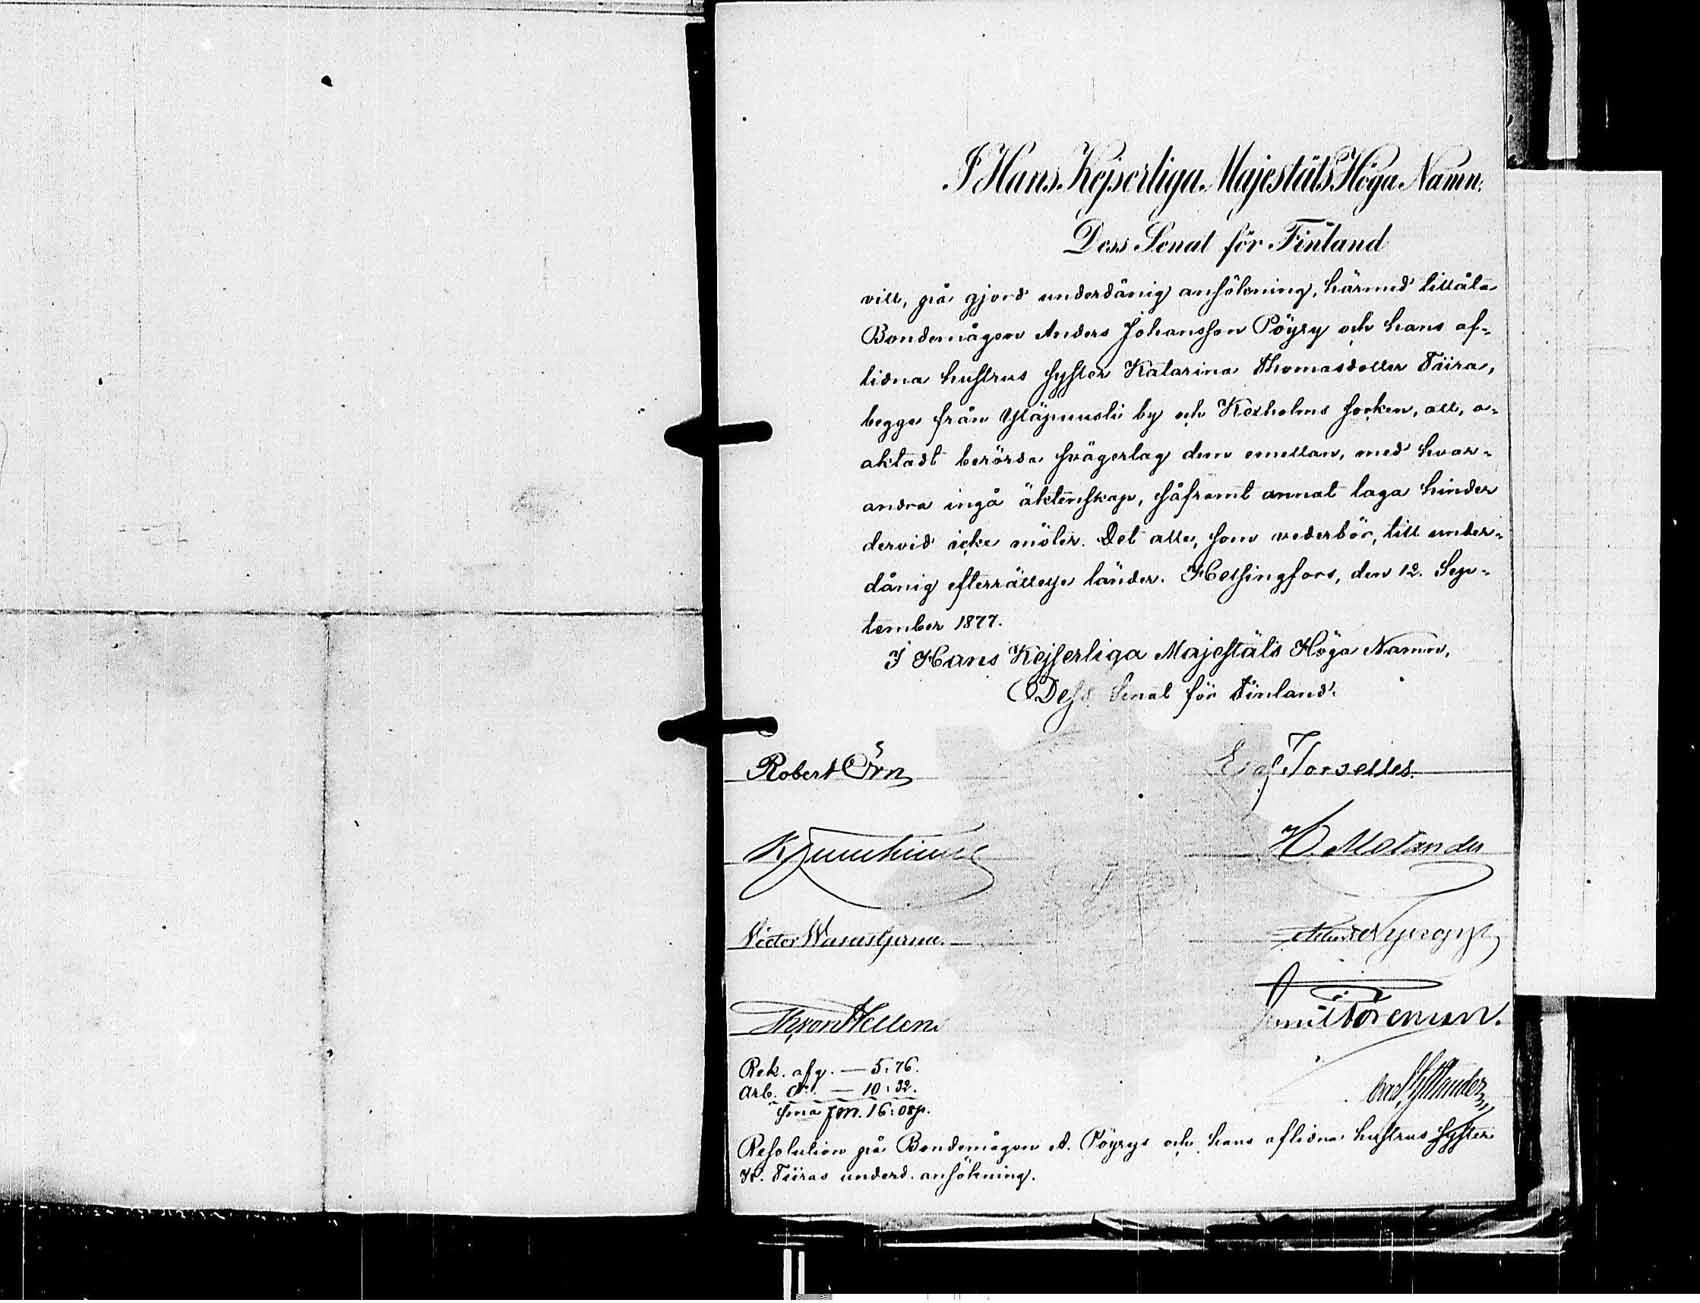 I Hans Kejserliga Majestäts Höga Namn,
Dess Senat för Finland
vill, på gjord underdånig ansökning, härmed tillåta
Bondemågen Anders Johansson Pöyry och hans af-
lidna hustrus syster Katarina Thomasdotter Tiira,
begge från Yläpuusti by och Kexholms socken, att, o-
aktadt berörda svågerlag dem emellan, med hvar-
andra ingå äktenskap, såframt annat laga hinder
dervid icke möter. Det alle, som vederbör, till under-
dånig efterrättelse länder. Helsingfors, den 12. Sep-
tember 1877.
I Hans Kejserliga Majestäts Höga Namn,
Dess Senat för Finland.
Robert Örn
af Forselles
H. Molander
Victor Wasastjerna
Theron Hellens
Emil Boreman.
Rek. afg. — 5:76.
Arb. d:o — 10:32.
S:ma Fm. 16:08p.
Resolution på Bondemågen A. Pöyrys och hans aflidna hustrus syster
K. Tiiras underd. ansökning.